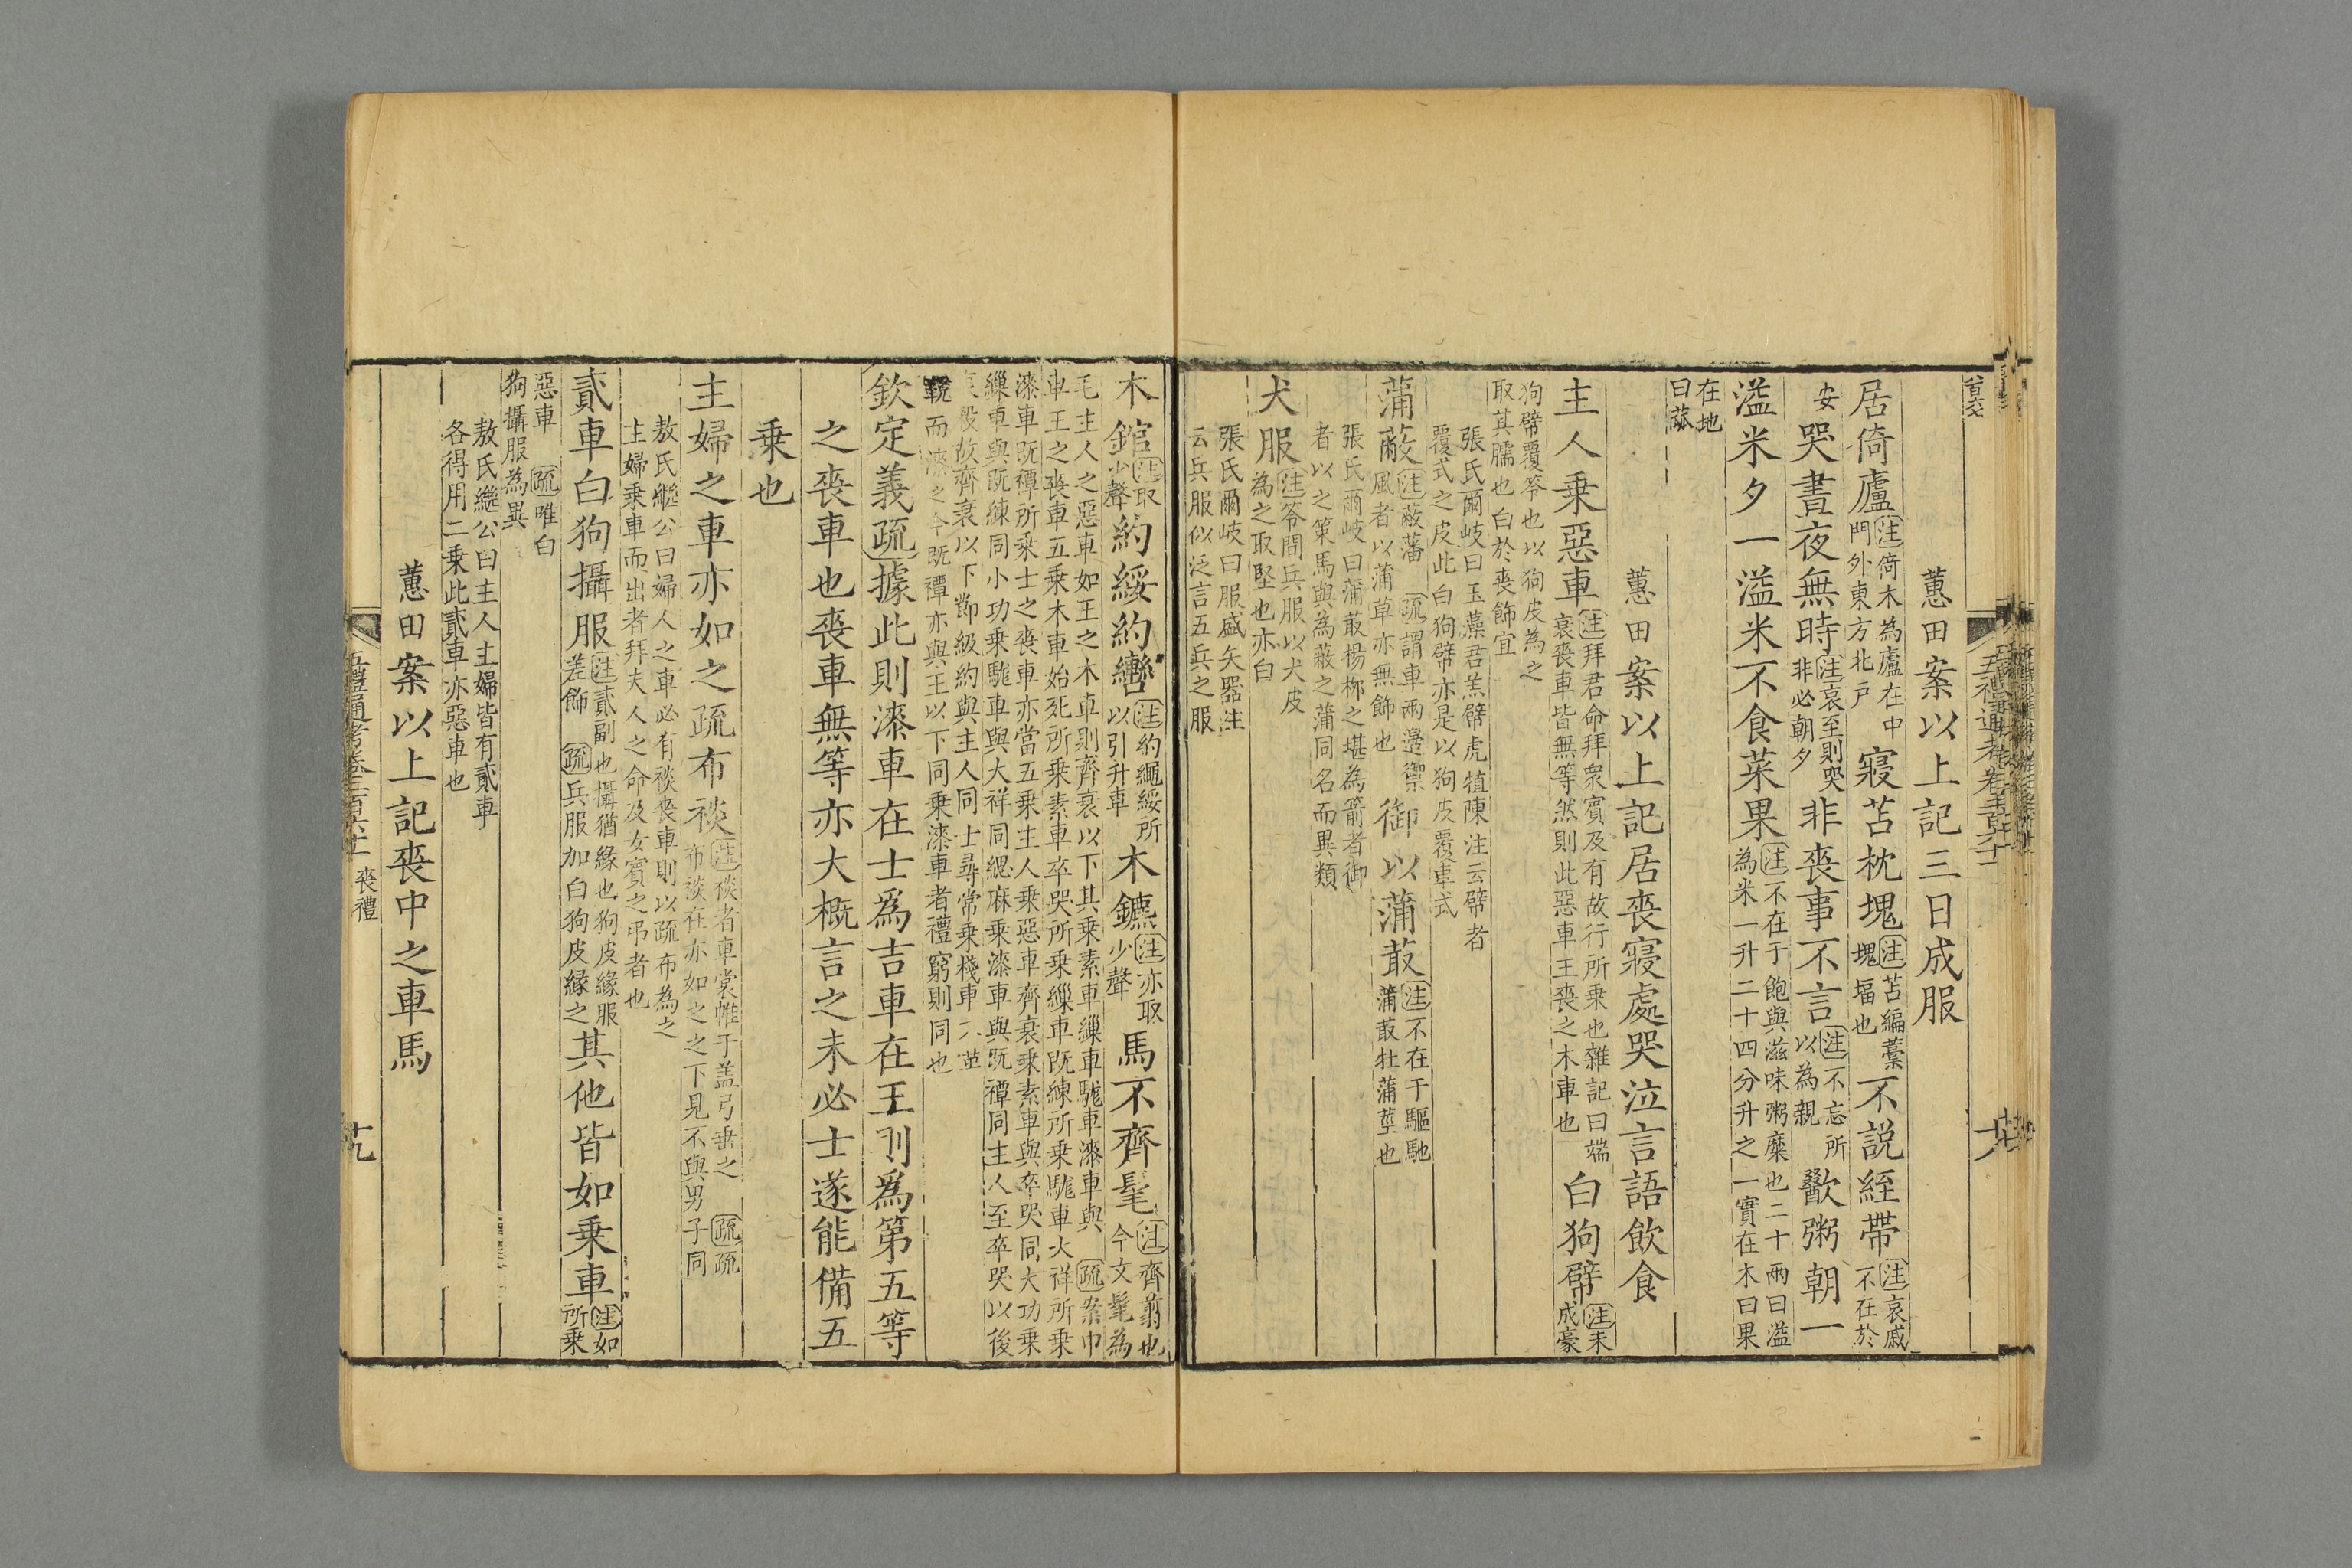 蕙田案以上記三日成服
居倚廬注倚木為廬在中門外東方北戶寢苫枕塊注苫編藁塊堛也不說絰帶注哀戚不在於
安哭晝夜無時注哀至則哭非必朝夕非喪事不言注不忘所以為親歠粥朝一
溢米夕一溢米不食菜果注不在于飽與滋味粥糜也二十兩曰溢為米一升二十四分升之一實在木曰果
在地曰蓏
蕙田案以上記居喪寢處哭泣言語飲食
主人乗惡車注拜君命拜衆賓及有故行所乗也雜記曰端衰喪車皆無等然則此惡車王喪之木車也白狗幦注未成豪
狗幦覆笭也以狗皮為之取其臑也白於喪飾宜
張氏爾岐曰玉藻君羔幦虎犆陳注云幦者覆式之皮此白狗幦亦是以狗皮覆車式
蒲蔽注蔽藩疏謂車兩邊禦風者以蒲草亦無飾也御以蒲菆注不在于驅馳蒲菆牡蒲莖也
張氏爾岐曰蒲菆楊栁之堪為箭者御者以之策馬與為蔽之蒲同名而異類
犬服注笭間兵服以犬皮為之取堅也亦白
張氏爾岐曰服盛矢器注云兵服似泛言五兵之服
五禮通考卷二百六十一
木錧注取少聲約綏約轡注約繩綏所以引升車木鑣注亦取少聲馬不齊髦注齊翦也今文髦為
毛主人之惡車如王之木車則齊衰以下其乗素車繅車駹車漆車與疏案巾車王之喪車五乗木車始死所乗素車卒哭所乗繅車既練所乗駹車大祥所乗
漆車既禫所乗士之喪車亦當五乗主人乗惡車齊衰乗素車與卒哭同大功乗繅車與既練同小功乗駹車與大祥同緦麻乗漆車與既禫同主人至卒哭以後
殺故齊衰以下節級約與主人同士尋常乗棧車而漆之今既禫亦與王以下同乗漆車者禮窮則同也
欽定義疏據此則漆車在士為吉車在王則為第五等
之喪車也喪車無等亦大概言之未必士遂能備五
乗也
主婦之車亦如之疏布裧注裧者車裳帷于蓋弓垂之疏疏布裧在亦如之之下見不與男子同
敖氏繼公曰婦人之車必有裧喪車則以疏布為之主婦乗車而出者拜夫人之命及女賓之弔者也
貳車白狗攝服注貳副也攝猶緣也狗皮緣服差飾疏兵服加白狗皮緣之其他皆如乗車注如所乗
惡車疏唯白狗攝服為異
敖氏繼公曰主人主婦皆有貳車各得用二乗此貳車亦惡車也
蕙田案以上記喪中之車馬
五禮通考卷二百六十一 喪禮